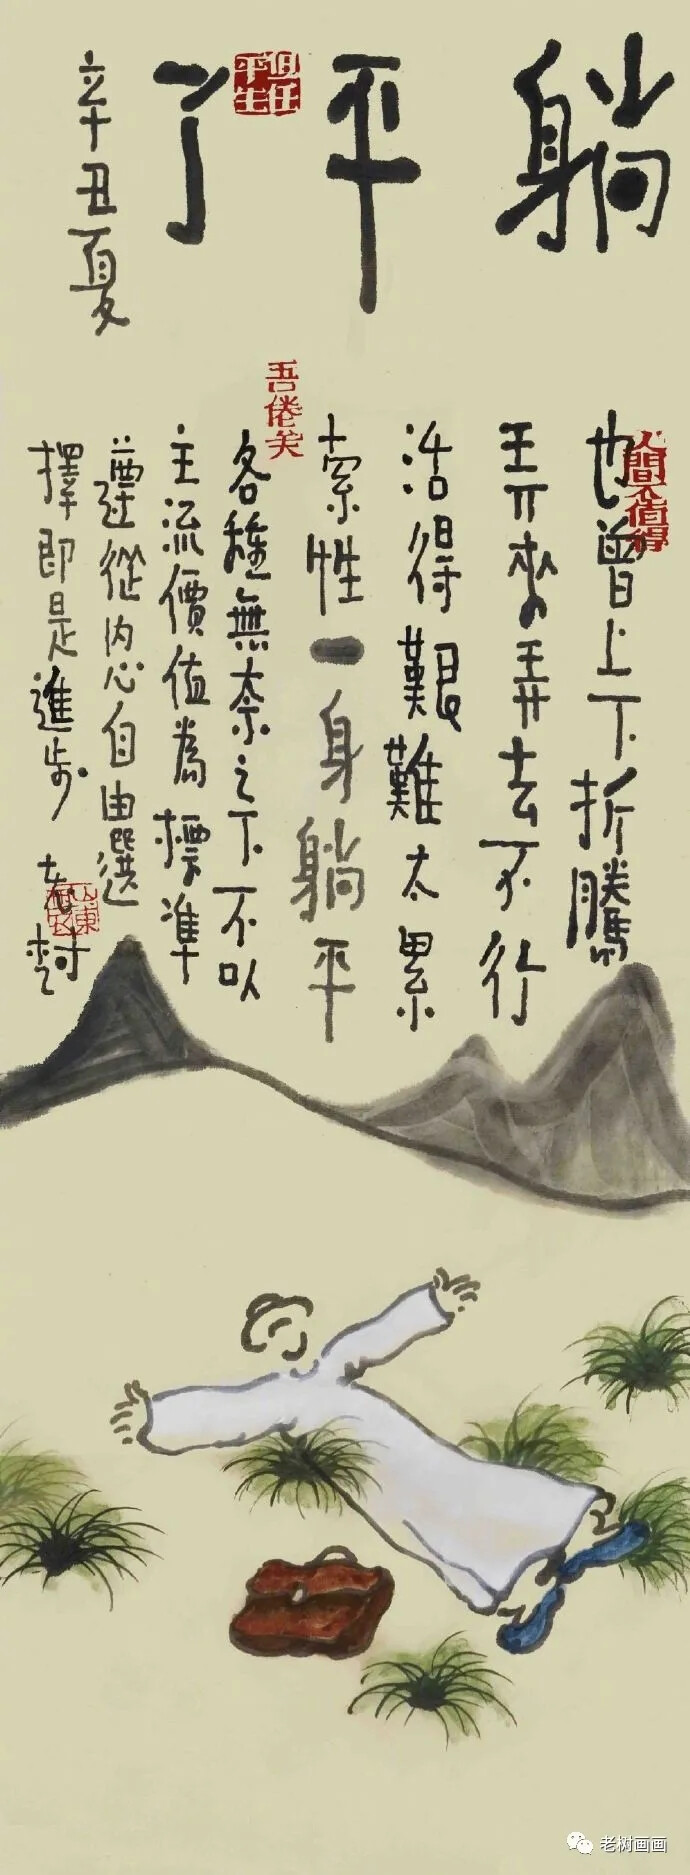 躺平了
辛丑夏
但任平生
人間不值得
也曾上下折騰
弄來弄去不行
活得艱難太累
索性一身躺平
吾倦矣
各種無奈之下不以
主流價值為標準
遵從内心自由選
擇即是進步 老樹
老树画画